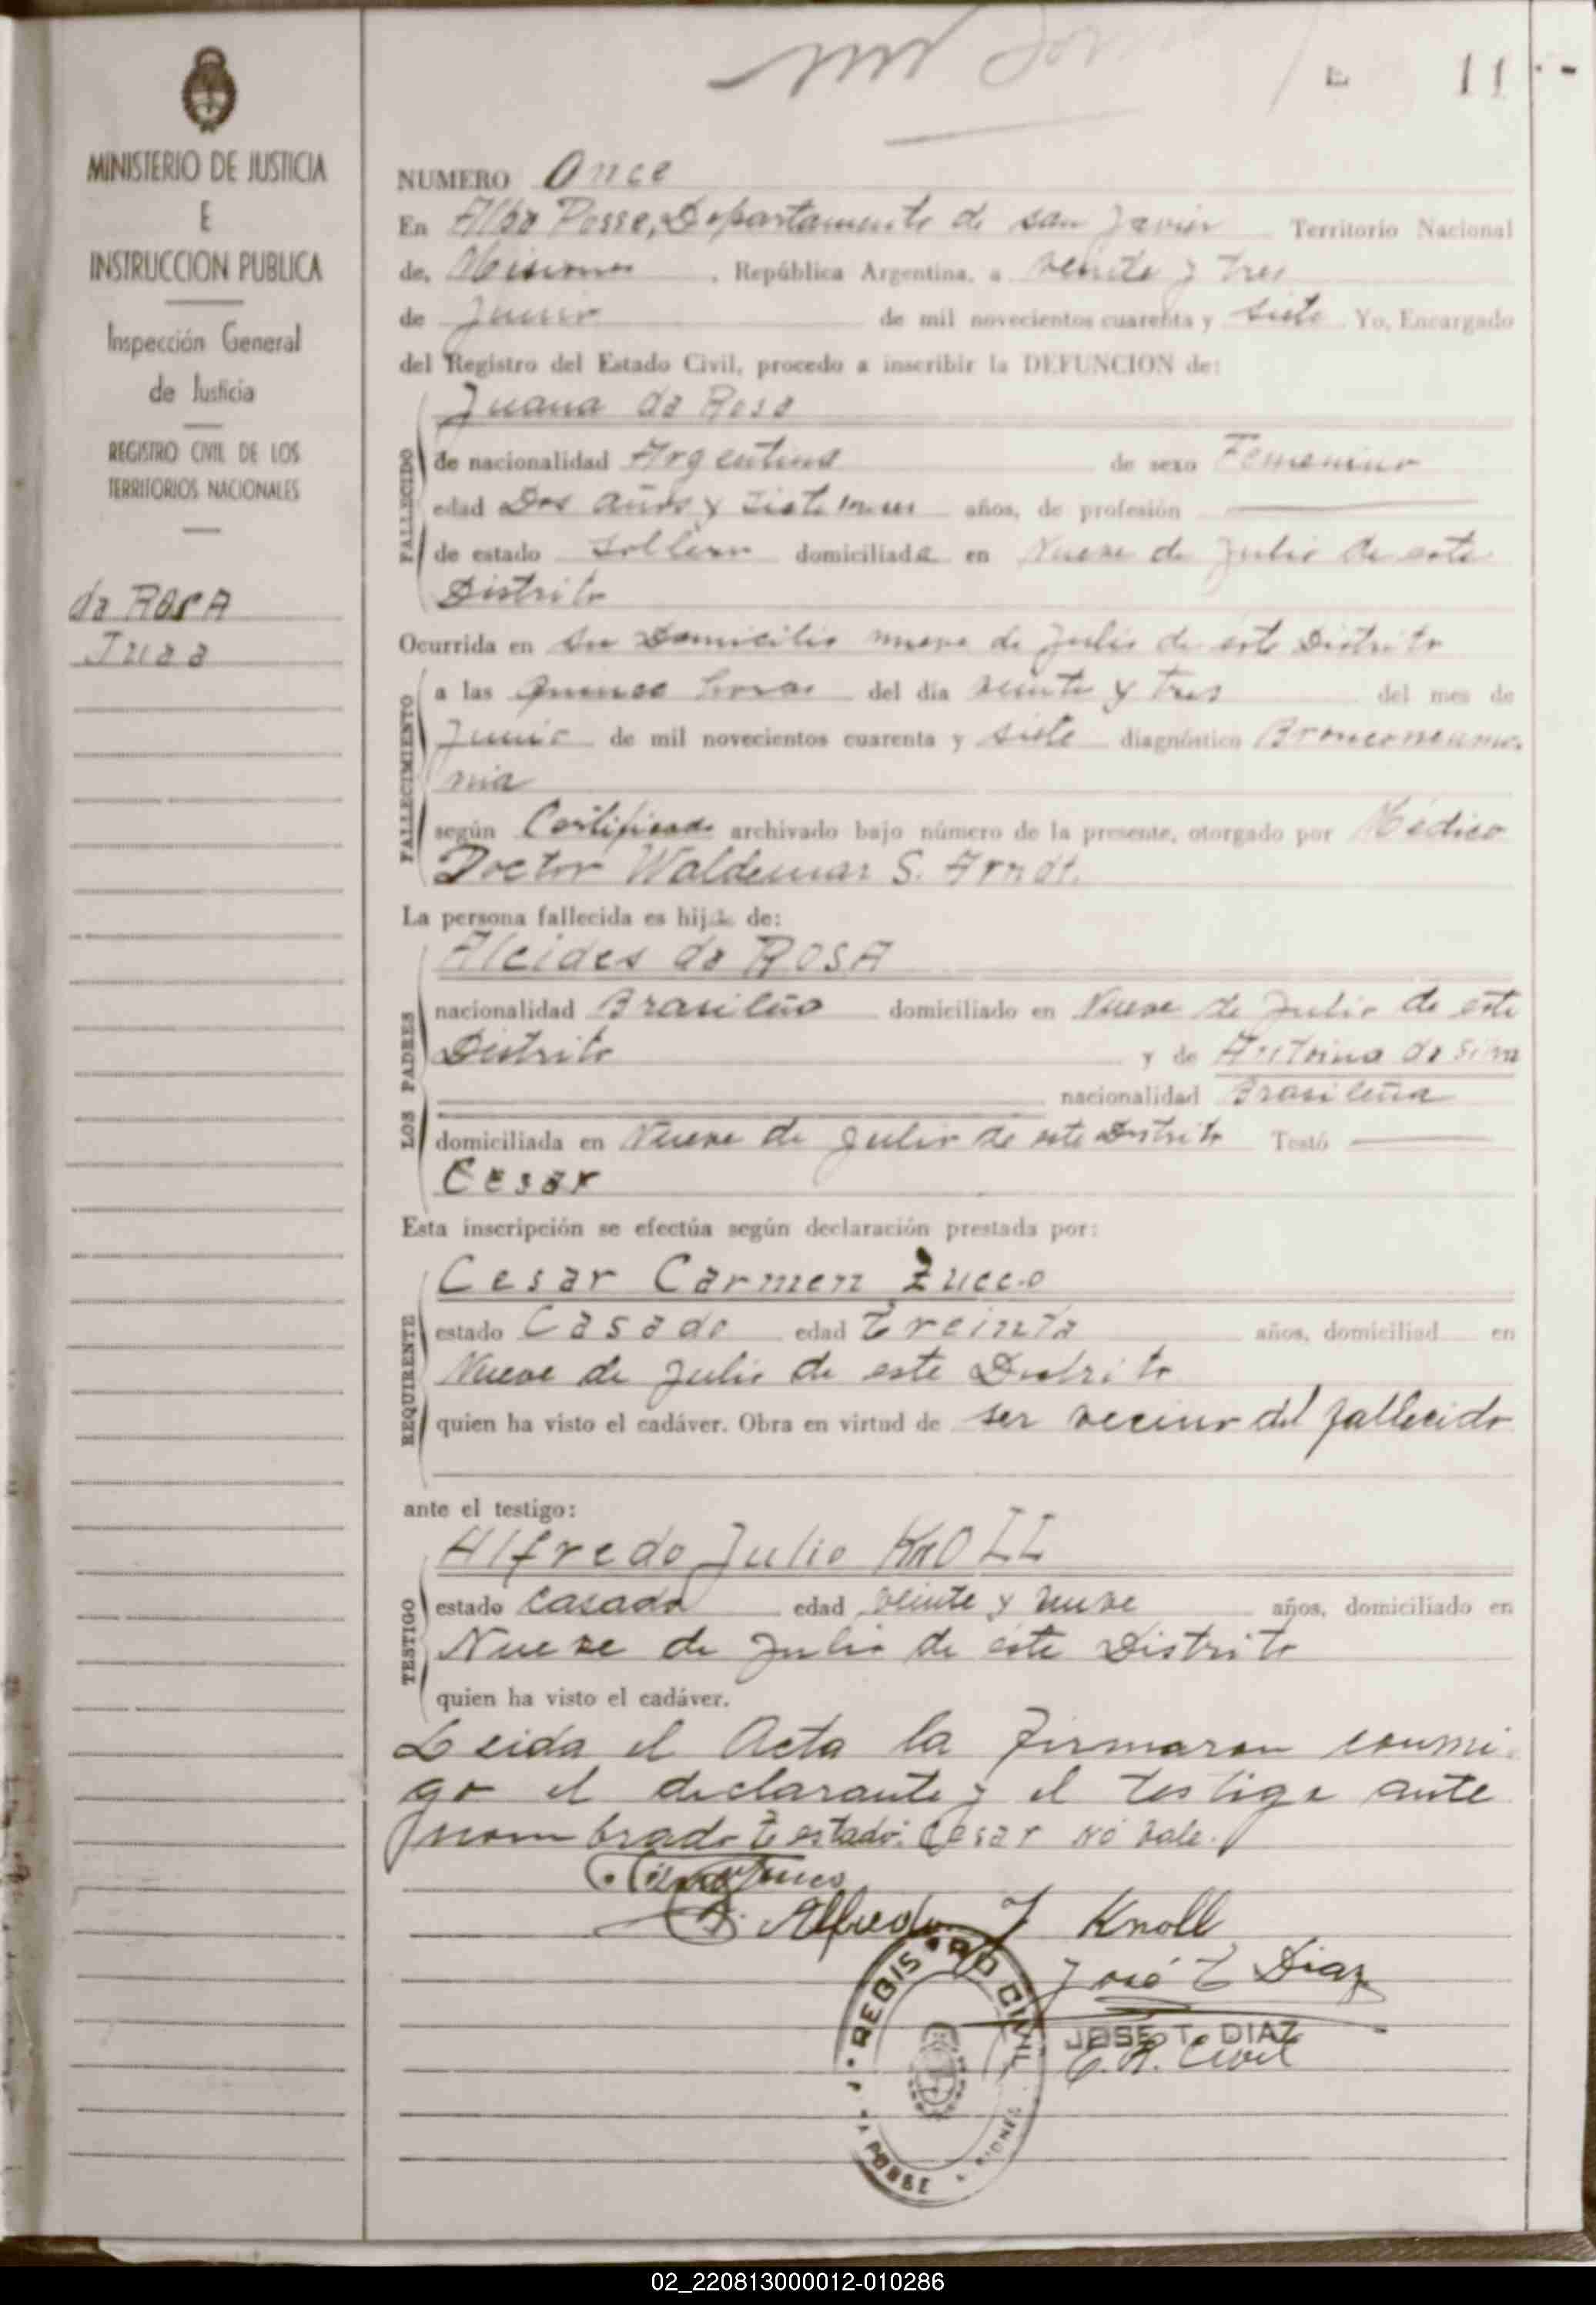 11
MINISTERIO DE JUSTICIA
E
INSTRUCCION PUBLICA
Inspección General
de Justicia
REGISTRO CIVIL DE LOS
TERRITORIOS NACIONALES
da ROSA
NUMERO Once
En Alba Posse, Departamento de san Javier Territorio Nacional
de, Misiones , República Argentina, a veinte y tres
de Junio de mil novecientos cuarenta y siete Yo, Encargado
del Registro del Estado Civil, procedo a inscribir la DEFUNCION de:
Juana da Rosa
FALLECIDO
de nacionalidad Argentina de sexo Femenino
edad Dos años y siete meses años, de profesión
de estado soltera domiciliada en Nueve de Julio de este
Distrito
Ocurrida en su Domicilio nueve de Julio de este Distrito
FALLECIMIENTO
a las quince horas del día veinte y tres del mes de
Junio de mil novecientos cuarenta y siete diagnóstico Bronconeumo-
nia
según Certificado archivado bajo número de la presente, otorgado por Médico
Doctor Waldemar S. Arndt.
La persona fallecida es hija de:
Alcides da ROSA
LOS PADRES
nacionalidad Brasileño domiciliado en Nueve de Julio de este
Distrito y de Antoina da Silva
nacionalidad Brasileña
domiciliada en Nueve de Julio de este Distrito Testó
Cesar
Esta inscripción se efectúa según declaración prestada por:
Cesar Carmen Zucco
REQUIRENTE
estado Casado edad treinta años, domiciliad en
Nueve de Julio de este Distrito
quien ha visto el cadáver. Obra en virtud de ser vecino del fallecido
ante el testigo:
Alfredo Julio KNOLL
TESTIGO
estado casado edad veinte y nueve años, domiciliado en
Nueve de Julio de este Distrito
quien ha visto el cadáver.
Leida el Acta la firmaron conmi-
go el declarante y el testigo ante
nombrado testado: Cesar no vale.
Alfredo J Knoll
José T Diaz
JOSE T. DIAZ
E. R. Civil
REGISTRO CIVIL
POSSE
02_220813000012-010286